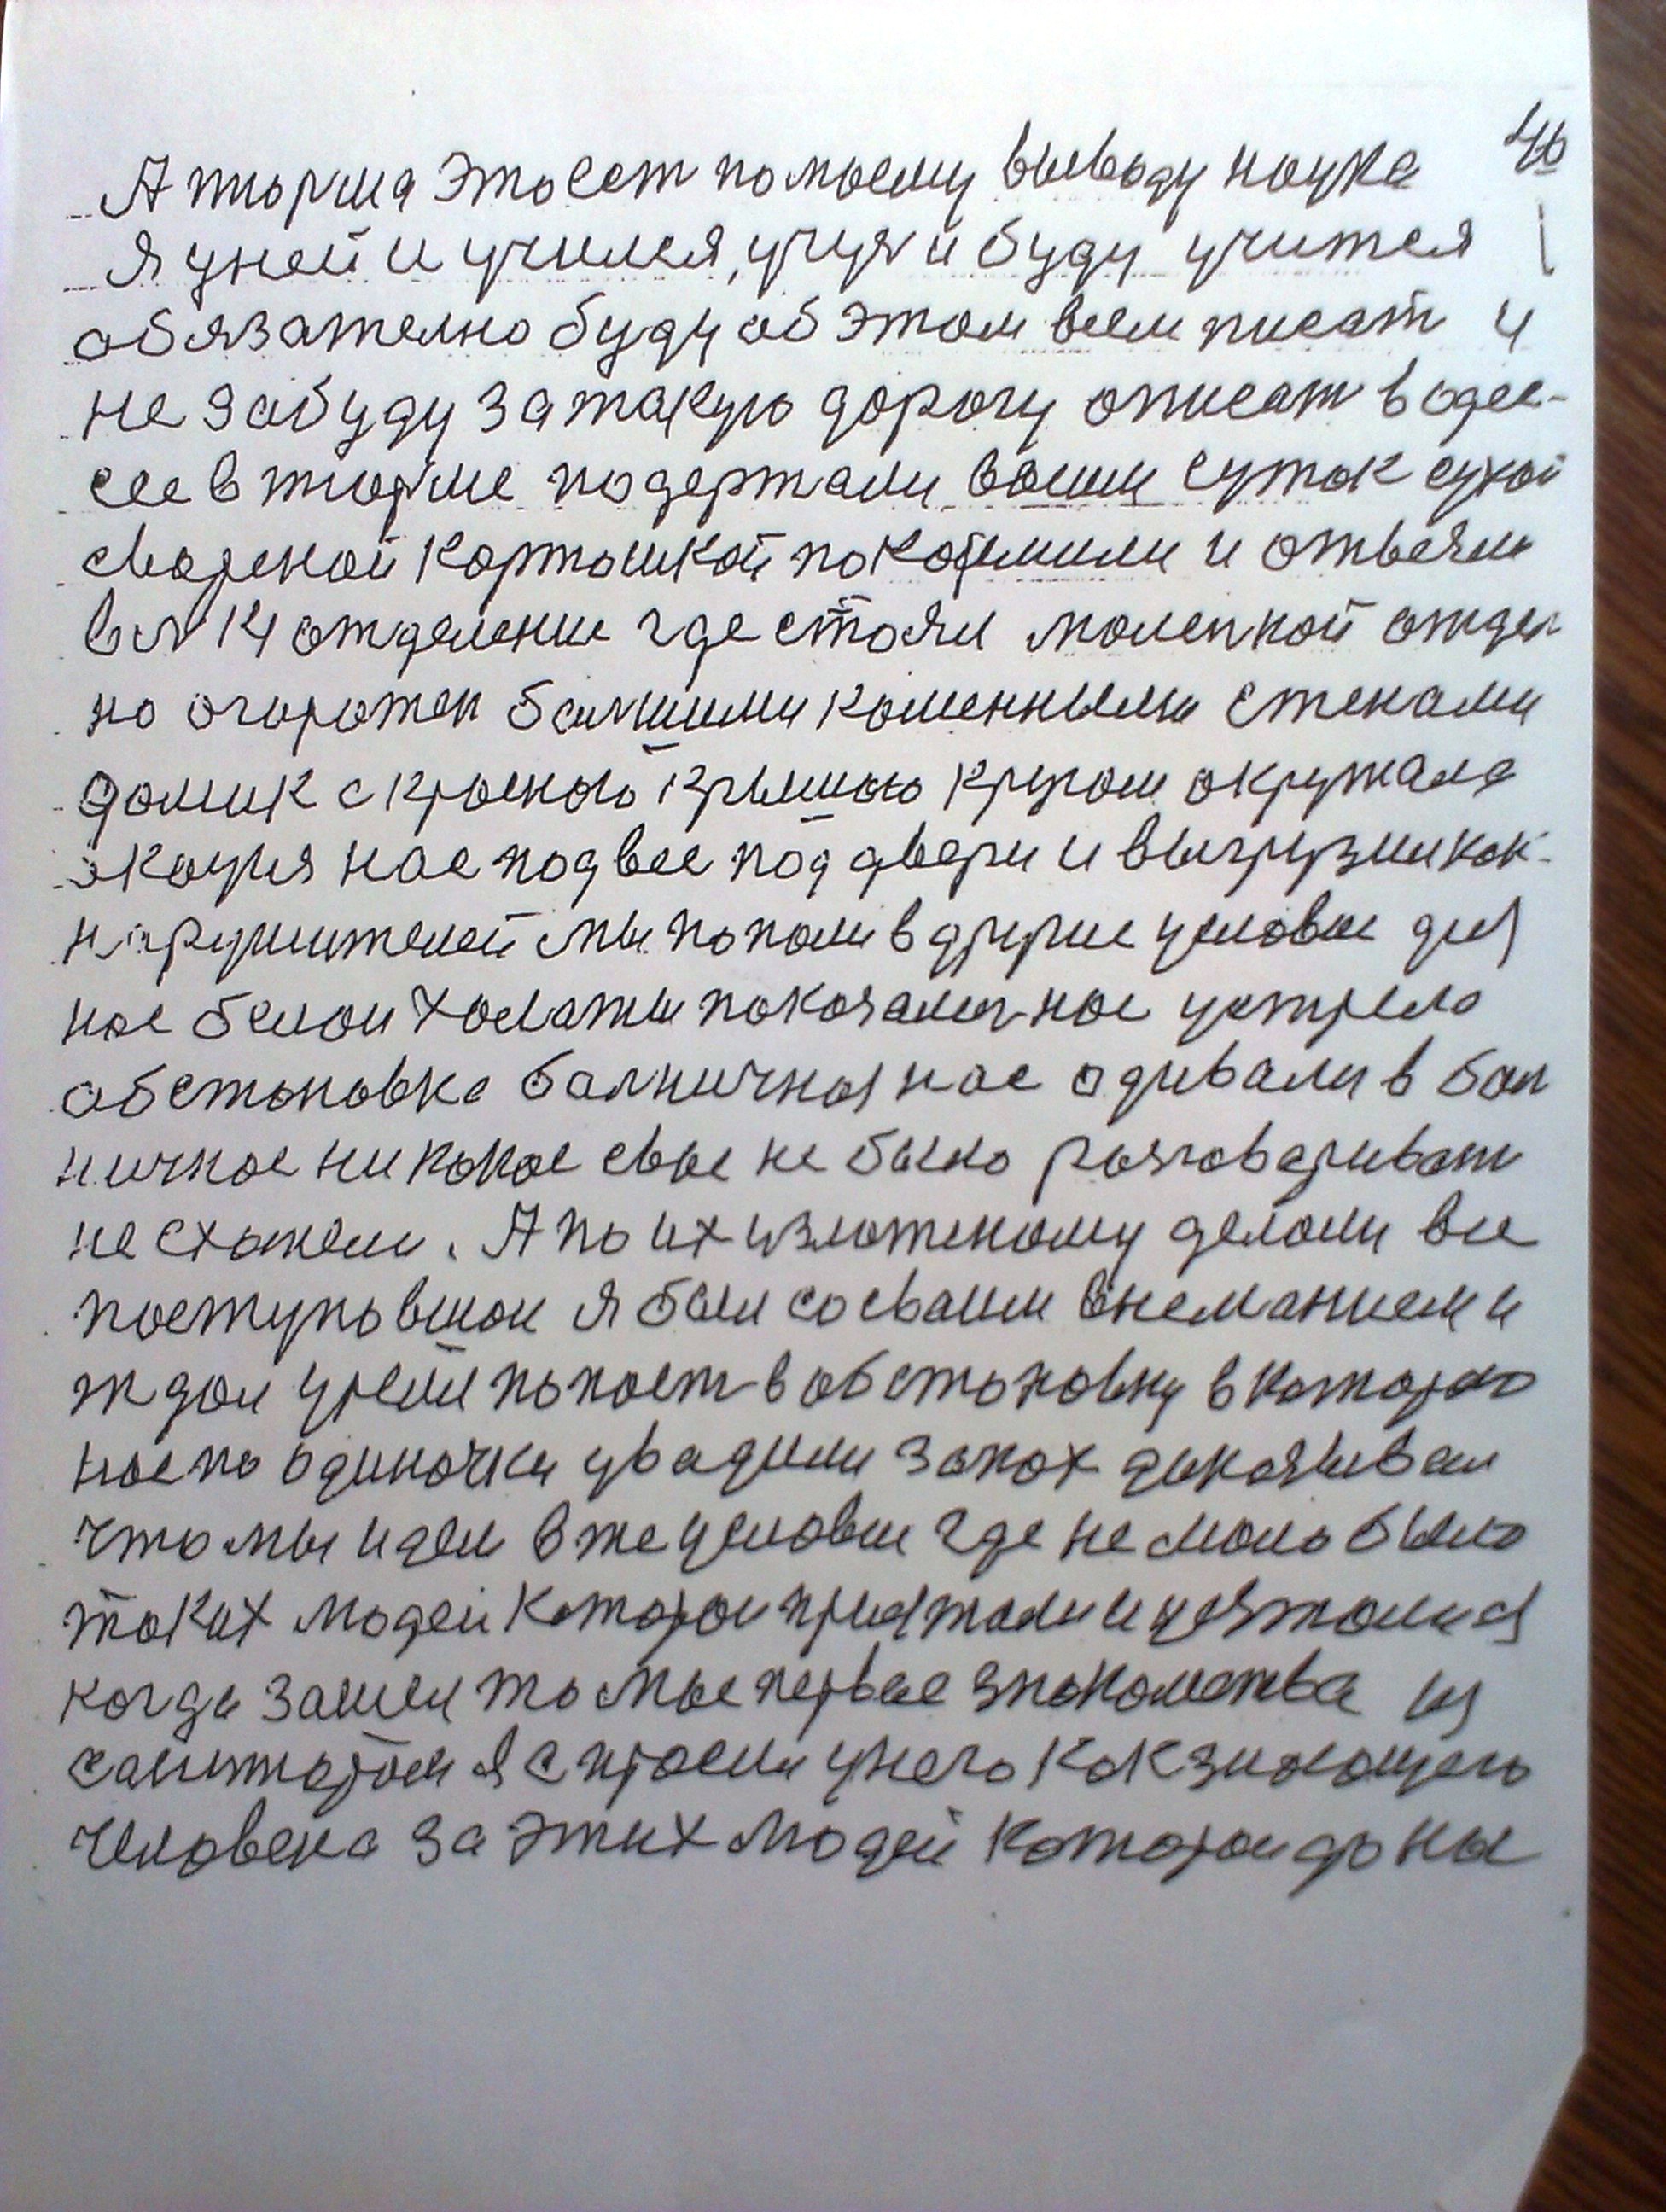 46
А тюрма это ест по моему выводу наука
Я у ней и учился, учуя и буду учится
обязателно буду об этом всем писат и
не забуду за такую дорогу описат в одес-
сее в тюрме подержали восим суток сухой
свареной картошкой покормили и отвезли
в 14 отделение где стоял маленкой отдел
но огорожен балшими каменными стенами
домик с красною крышою кругом окружала
акация нас подвез под двери и выгрузил как
нарушителей мы попали в другие условие для
нас белои халаты показалис нас устрела
обстановка балничная нас одивали в бал
ничное никакое свое не было разговариват
не стали. А по их изложеному делали все
поступавшои я был со сваим внеманием и
ждал время попаст в обстановку в которою
нас по одиночки увадили запах доказывал
что мы идем в же условии где не мало было
таких людей которои приятали и
когда зашел то мое первое знакомства из
санитаром я спросил у него как знающего
человека за этих людей которои до нас